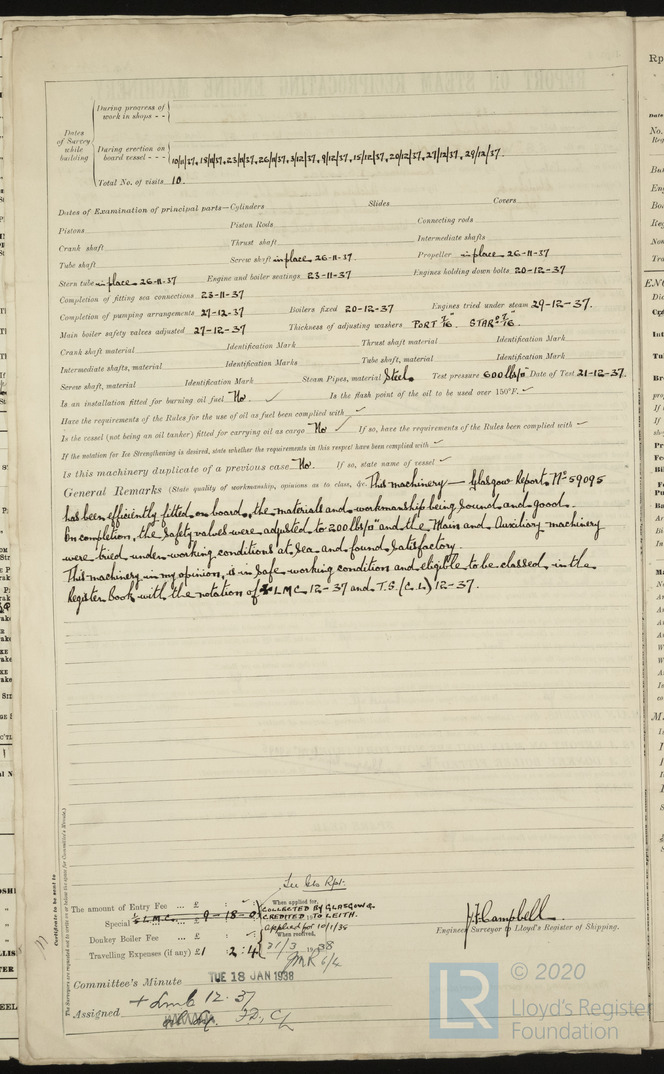 During progress of work in shops - -
Dates of Survey while building
During erection on board vessel - - - 10/11/37, 18/11/37, 23/11/37, 26/11/37, 3/12/37, 9/12/37, 15/12/37, 20/12/37, 27/12/37, 29/12/37.
Total No. of visits 10.
Dates of Examination of principal parts—Cylinders Slides Covers
Pistons Piston Rods Connecting rods
Crank shaft Thrust shaft Intermediate shafts
Tube shaft Screw shaft in place 26-11-37 Propeller in place 26-11-37
Stern tube in place 26-11-37 Engine and boiler seatings 23-11-37 Engines holding down bolts 20-12-37
Completion of fitting sea connections 23-11-37
Completion of pumping arrangements 27-12-37 Boilers fixed 20-12-37 Engines tried under steam 29-12-37.
Main boiler safety valves adjusted 27-12-37 Thickness of adjusting washers PORT 7/16" STARD 7/16"
Crank shaft material Identification Mark Thrust shaft material Identification Mark
Intermediate shafts, material Identification Marks Tube shaft, material Identification Mark
Screw shaft, material Identification Mark Steam Pipes, material Steel Test pressure 600 lbs/□" Date of Test 21-12-37.
Is an installation fitted for burning oil fuel No. ✓ Is the flash point of the oil to be used over 150°F. ✓
Have the requirements of the Rules for the use of oil as fuel been complied with ✓
Is the vessel (not being an oil tanker) fitted for carrying oil as cargo No ✓ If so, have the requirements of the Rules been complied with ✓
If the notation for Ice Strengthening is desired, state whether the requirements in this respect have been complied with ✓
Is this machinery duplicate of a previous case No. If so, state name of vessel ✓
General Remarks (State quality of workmanship, opinions as to class, &c. This machinery — Glasgow Report No 59095
has been efficiently fitted on board, the materials and workmanship being sound and good.
On completion, the safety valves were adjusted to 200 lbs/□" and the Main and Auxiliary machinery
were tried under working conditions at sea and found satisfactory.
This machinery in my opinion, is in safe working condition and eligible to be classed in the
Register Book with the notation of + LMC 12-37 and T.S. (C.L.) 12-37.
See Gls Rpt.
The amount of Entry Fee ... £ : : When applied for,
Special ⅕ L.M.C. ... £ 9-18-0 COLLECTED BY GLASGOW &
CREDITED TO LEITH.
Applied for 10/1/38
Donkey Boiler Fee ... £ : : When received,
Travelling Expenses (if any) £1 : 2:4 31/3 1938
JMR 6/4
J. J. Campbell.
Engineer Surveyor to Lloyd's Register of Shipping.
Committee's Minute TUE 18 JAN 1938
Assigned + LMC 12.37
FD, CL
Certificate to be sent to
The Surveyors are requested not to write on or below the space for Committee's Minute.
LR © 2020
Lloyd's Register
Foundation